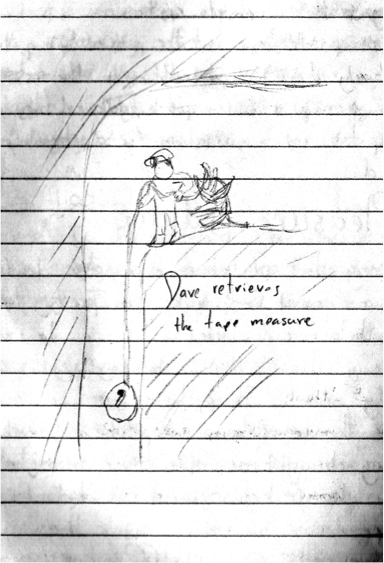 Dave retrieves
the tape measure